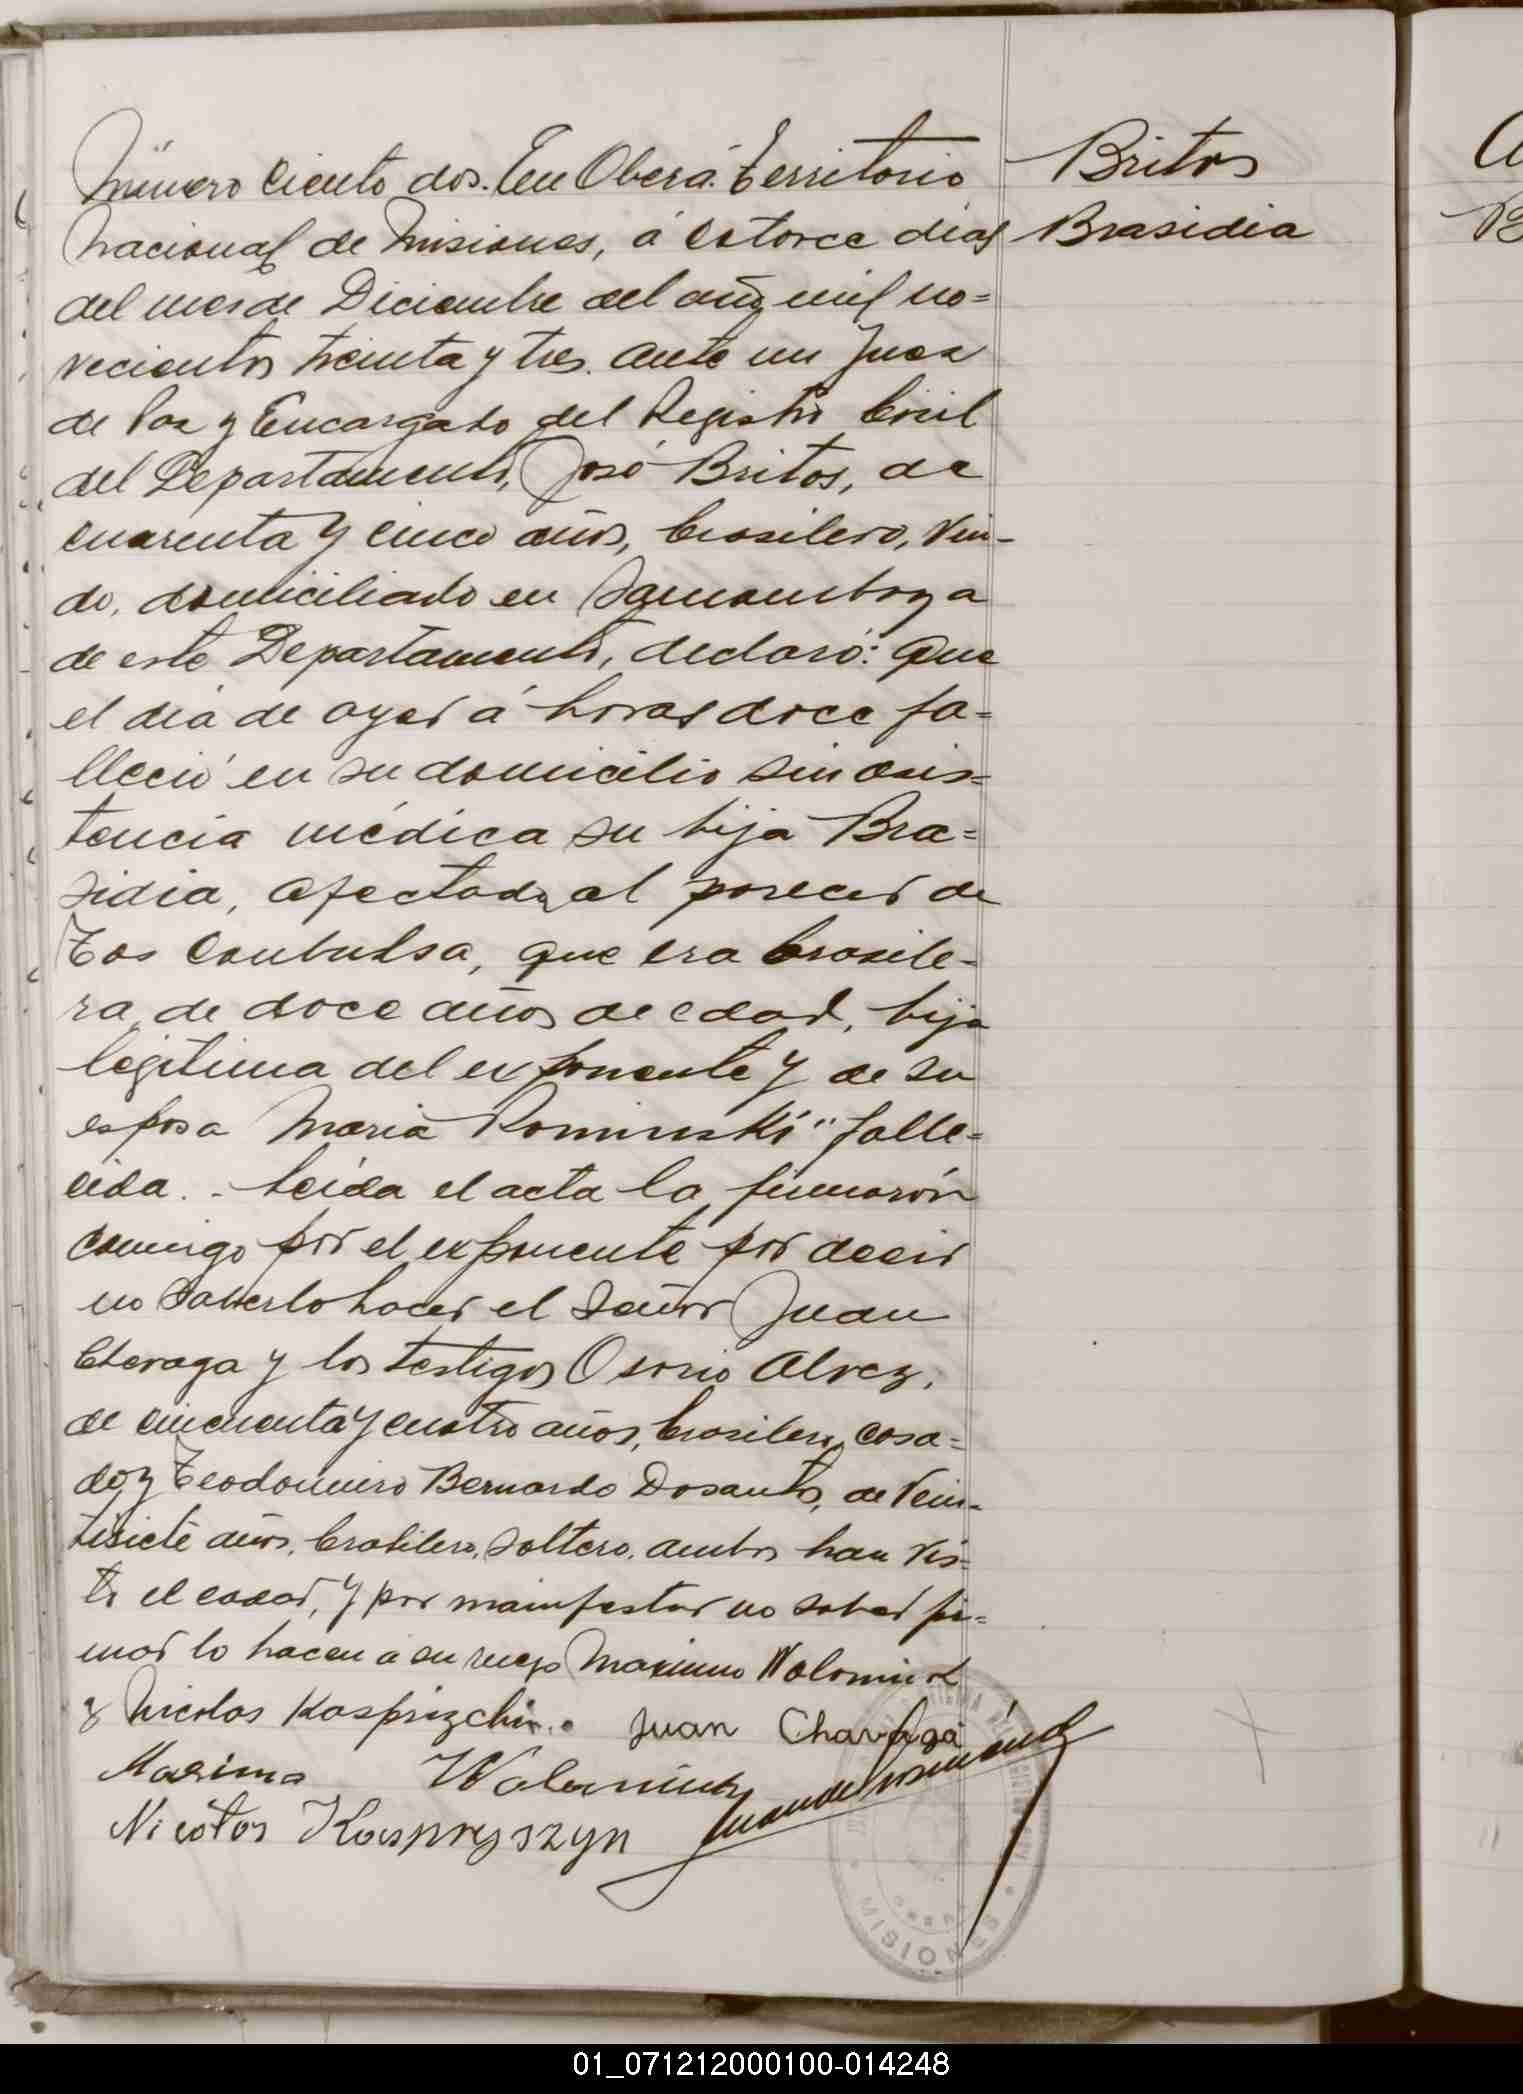 Número ciento dos. En Oberá. Territorio
Nacional de Misiones, á catorce dias
del mes de Diciembre del año mil no=
vecientos treinta y tres. ante mi Juez
de Paz y Encargado del Registro Civil
del Departamento, José Britos, de
cuarenta y cinco años, brasilero, viu-
do, domiciliado en Samambaya
de este Departamento, declaró: Que
el dia de ayer á horas doce fa=
lleció en su domicilio sin asis=
tencia médica su hija Bra=
sidia, afectada al parecer de
Tos Conbulsa, que era brasile-
ra, de doce años de edad, hija
legitima del exponente y de su
esposa Maria Rominski "falle=
cida. - Leida el acta la firmarón
comigo por el exponente por decir
no saberlo hacer el Señor Juan
Chavaga y los testigos Osorio Alvez,
de cincuenta y cuatro años, brasilero, casa=
do, y Teodomiro Bernardo Dosantos, de Vein-
tisiete años, brasilero, soltero, ambos han vis=
to el cadar, y por manifestar no saber fir=
mar lo hacen á su ruego Maximo Wolomiuk
y Nicolas Kasprizchin.. Juan Chavaga
Maximo
Nicolas Kaspryszyn
MISIONES
Britos
Brasidia
01_071212000100-014248